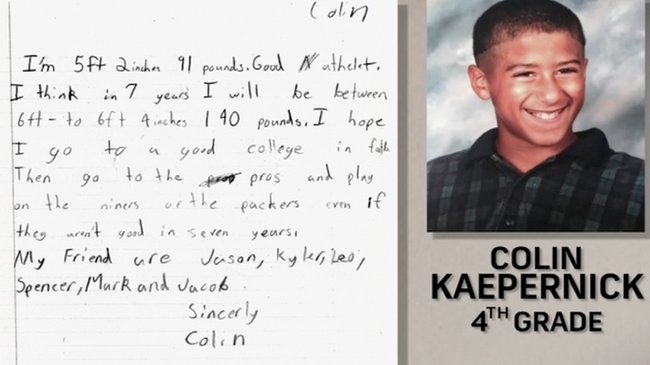 Colin
I'm 5ft 2inches 91 pounds. Good athelet.
I think in 7 years I will be between
6ft- to 6ft 4inches 140 pounds. I hope
I go to a good college in football
Then go to the pros and play
on the niners or the packers even if
they aren't good in seven years.
My Friend are Jason, Kyler, Leo,
Spencer, Mark and Jacob.
Sincerly
Colin
COLIN
KAEPERNICK
4TH GRADE